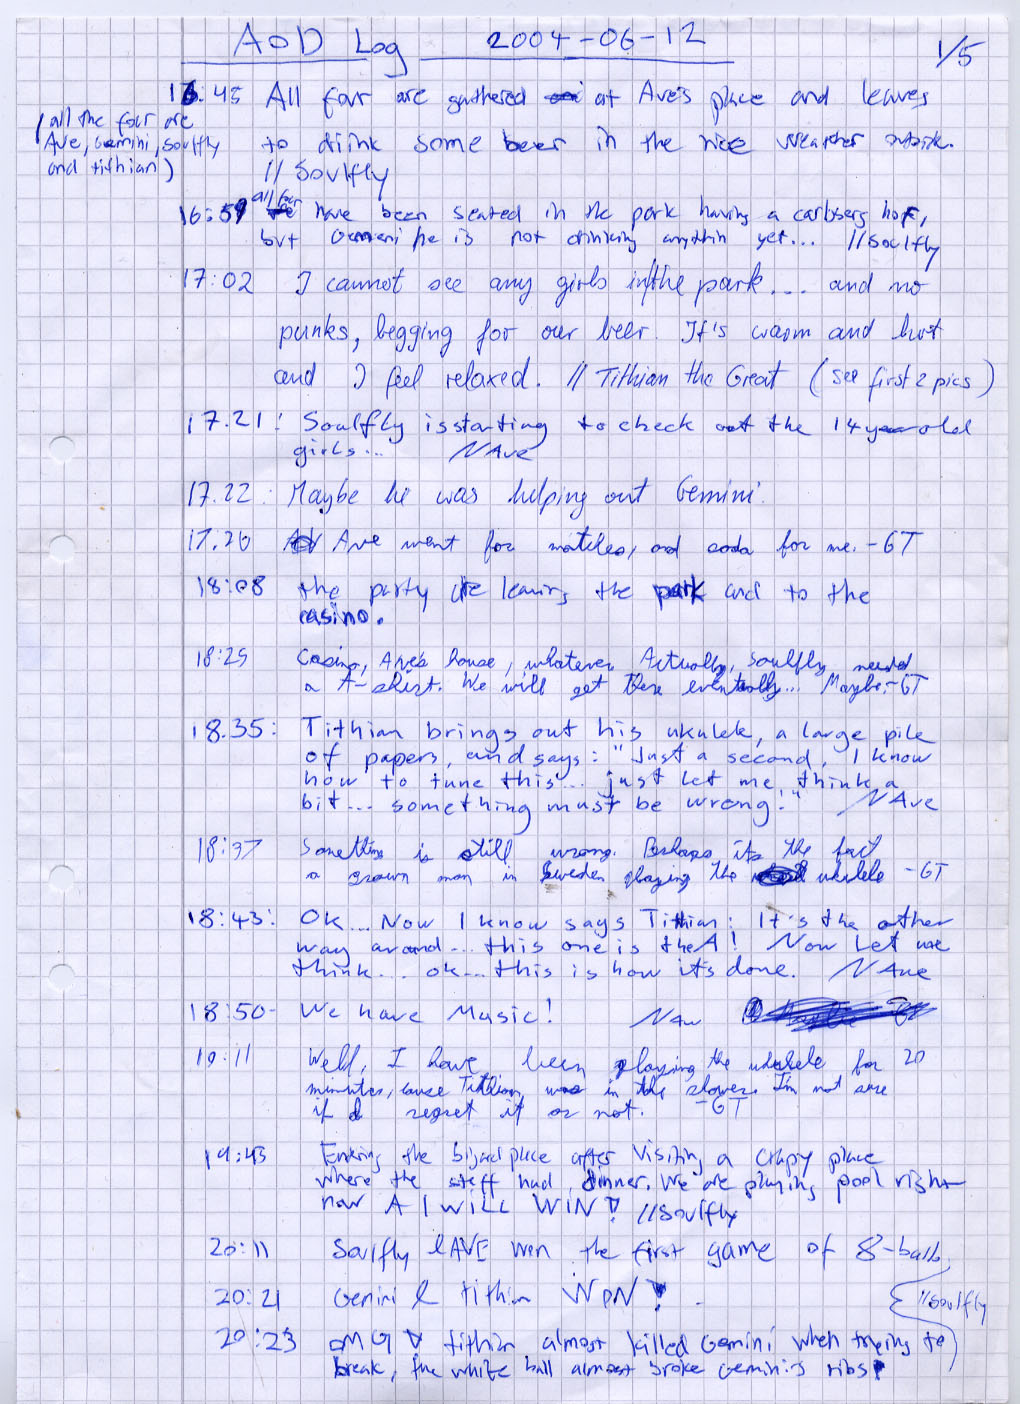 AoD Log 2004-06-12 1/5
16:45 All four are gathered at Ave's place and leaves
(all the four are
Ave, Gemini, Soulfly
and tithian)
to drink some beer in the nice weather outside.
// Soulfly
16:59 all four have been seated in the park having a carlsberg hof,
but Gemeni he is not drinking anythin yet... //Soulfly
17:02 I cannot see any girls in the park... and no
punks, begging for our beer. It's warm and hot
and I feel relaxed. // Tithian the Great (see first 2 pics)
17.21: Soulfly is starting to check out the 14 year old
girls... //Ave
17.22: Maybe he was helping out Gemini.
17.26 Ave went for matches, and soda for me. -GT
18:08 the party are leaving the park and to the
casino.
18:29 Casino, Ave's house, whatever. Actually, Soulfly needed
a T-shirt. We will get there eventually... Maybe. -GT
18.35: Tithian brings out his ukulele, a large pile
of papers, and says: "Just a second, I know
how to tune this... just let me think a
bit... something must be wrong!" //Ave
18:37 Something is still wrong. Perhaps its the fact
a grown man in Sweden playing the ukulele -GT
18:43: Ok... Now I know says Tithian: It's the other
way around... this one is the A! Now let me
think... ok... this is how it's done. //Ave
18:50- We have Music! //Ave
19:11 Well, I have been playing the ukulele for 20
minutes, cause Tithian was in the shower. I'm not sure
if I regret it or not. -GT
19:43 Entering the biljard place after visiting a crappy place
where the staff had dinner. We are playing pool right
now A I WILL WIN! //Soulfly
20:11 Soulfly & AVE won the first game of 8-ball
20:21 Gemini & tithian WON!
//Soulfly
20:23 OMG! tithian almost killed Gemini when trying to
break, the white ball almost broke Gemini's ribs!